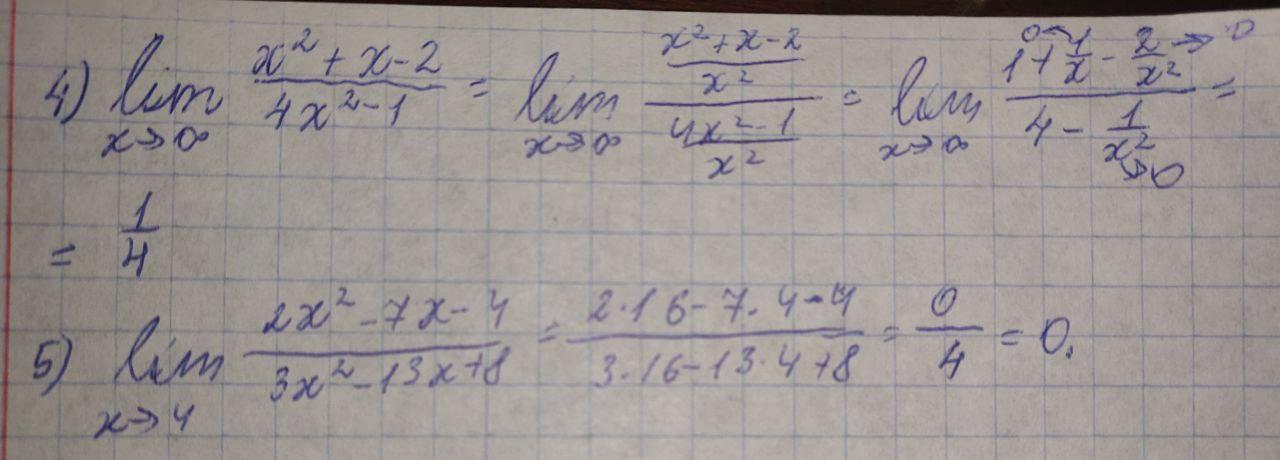 4) lim x→∞ (x² + x - 2)/(4x² - 1) = lim x→∞ ((x² + x - 2)/x²)/((4x² - 1)/x²) = lim x→∞ (1 + 1/x →0 - 2/x² →0)/(4 - 1/x² →0) =
= 1/4
5) lim x→4 (2x² - 7x - 4)/(3x² - 13x + 8) = (2·16 - 7·4 - 4)/(3·16 - 13·4 + 8) = 0/4 = 0.